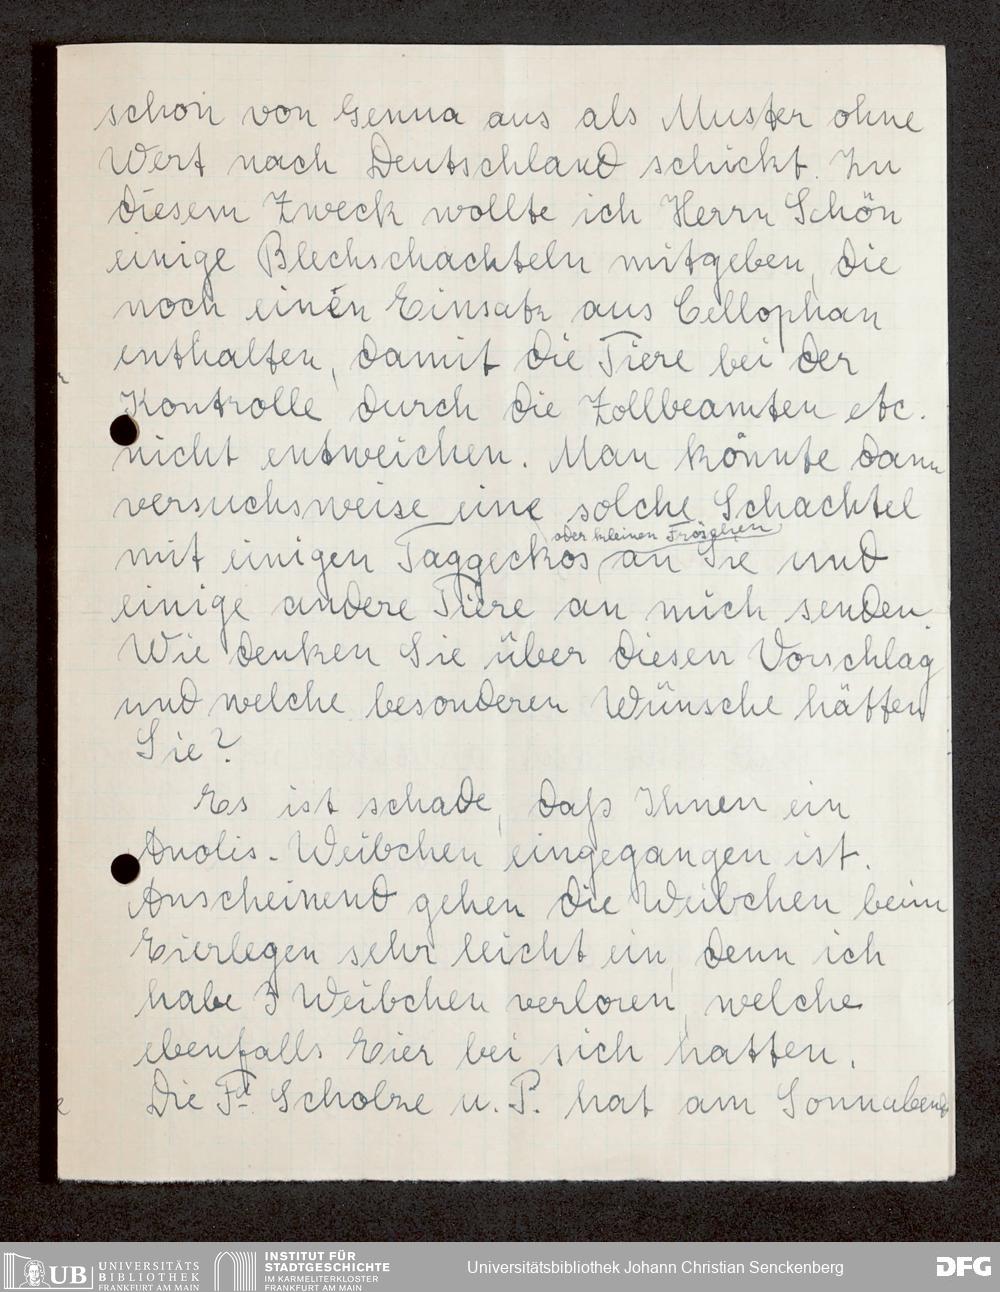 schon von Genua aus als Muster ohne
Wert nach Deutschland schickt. Zu
diesem Zweck wollte ich Herrn Schön
einige Blechschachteln mitgeben, die
noch einen Einsatz aus Cellophan
enthalten, damit die Tiere bei der
Kontrolle durch die Zollbeamten etc.
nicht entweichen. Man könnte dann
versuchsweise eine solche Schachtel
oder kleinen Fröschen
mit einigen Taggeckos an Sie und
einige andere Tiere an mich senden.
Wie denken Sie über diesen Vorschlag
und welche besonderen Wünsche hätten
Sie?
Es ist schade, daß Ihnen ein
Anolis-Weibchen eingegangen ist.
Anscheinend gehen die Weibchen beim
Eierlegen sehr leicht ein, denn ich
habe 3 Weibchen verloren, welche
ebenfalls Eier bei sich hatten.
Die Fa. Scholze u. P. hat am Sonnabend
UB UNIVERSITÄTS
BIBLIOTHEK
FRANKFURT AM MAIN
INSTITUT FÜR
STADTGESCHICHTE
IM KARMELITERKLOSTER
FRANKFURT AM MAIN
Universitätsbibliothek Johann Christian Senckenberg
DFG